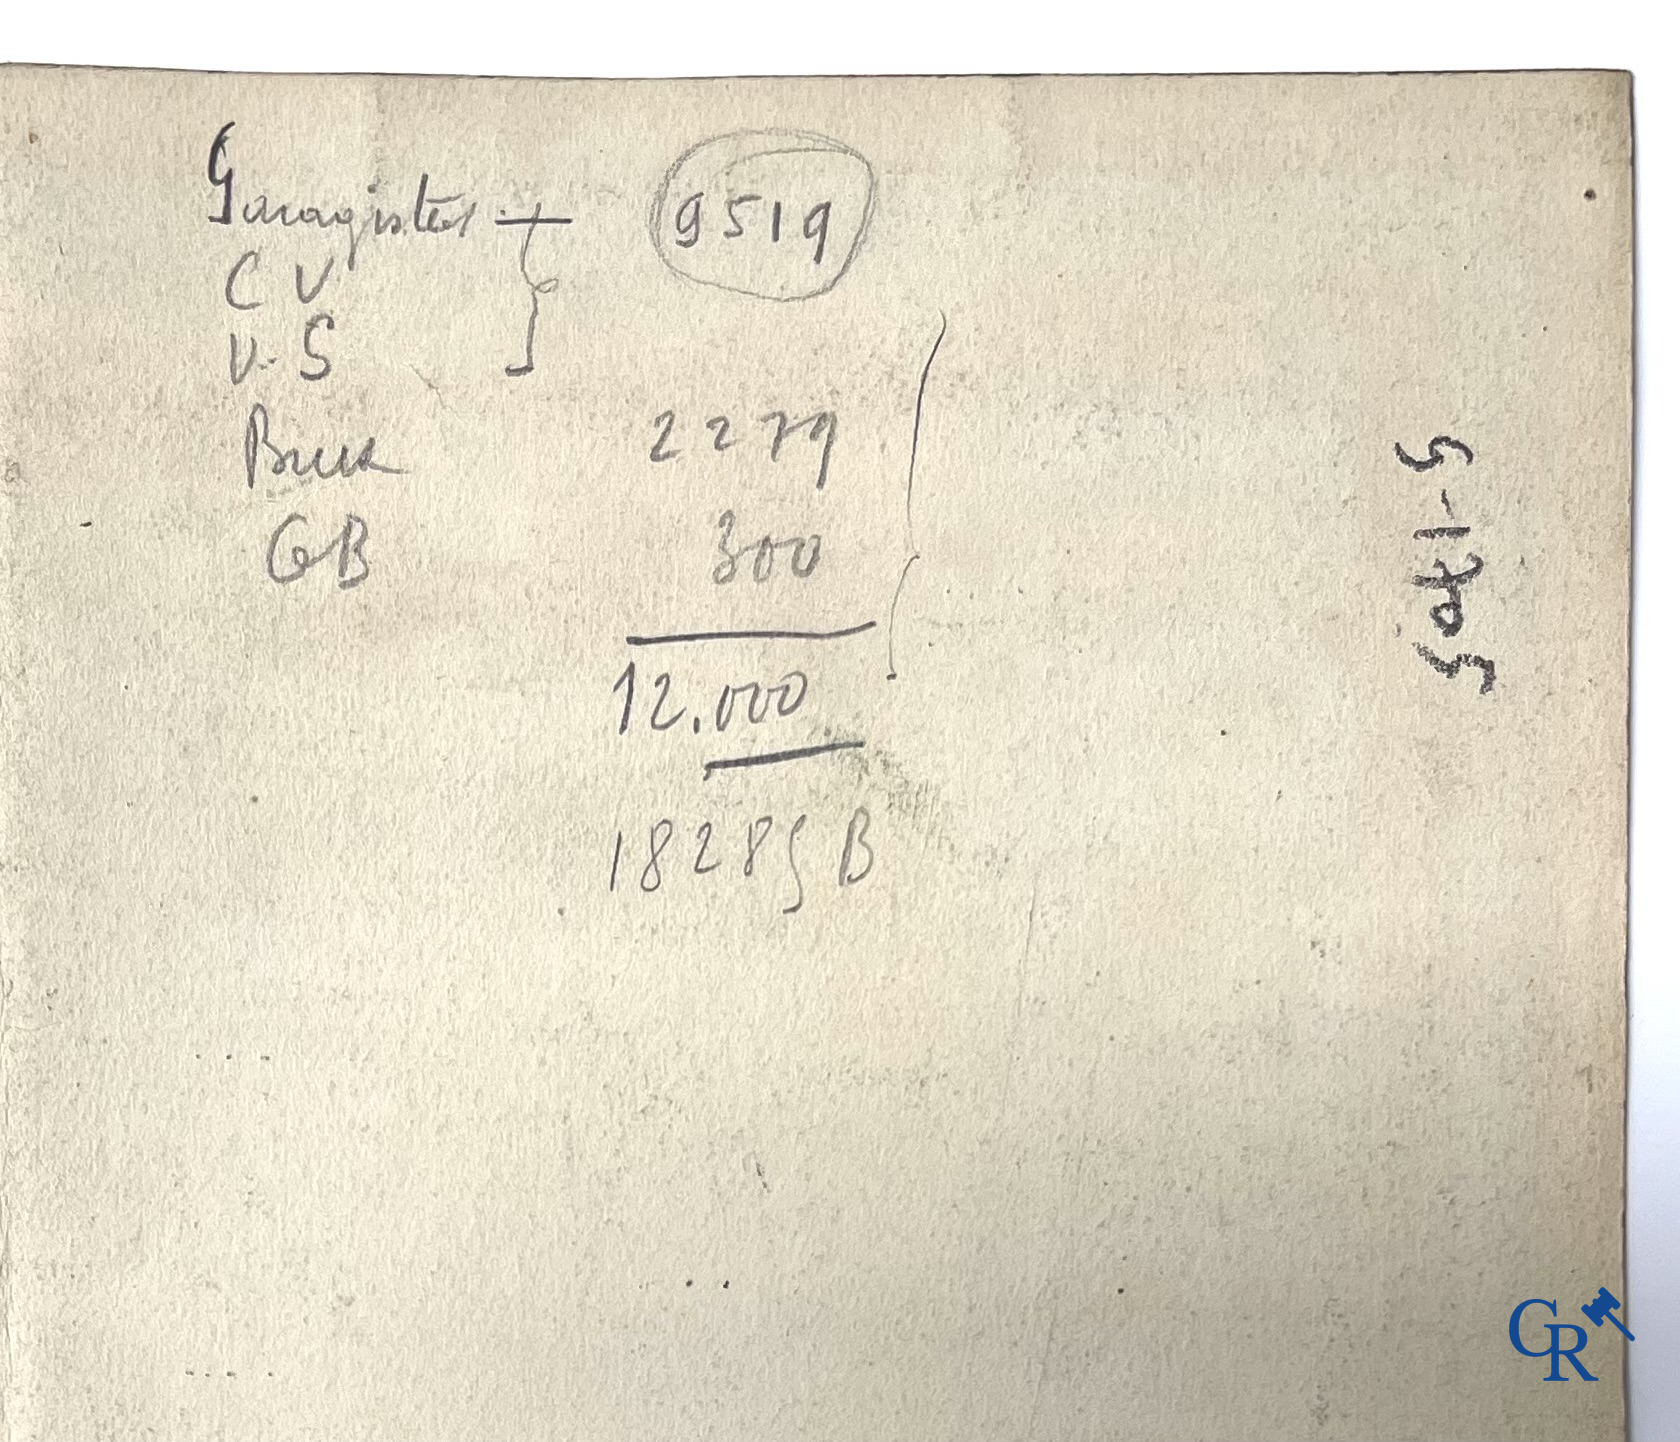 Garagistes 9519
C V
V. S
Brux 2279
GB 300
12.000
18285 B
CR